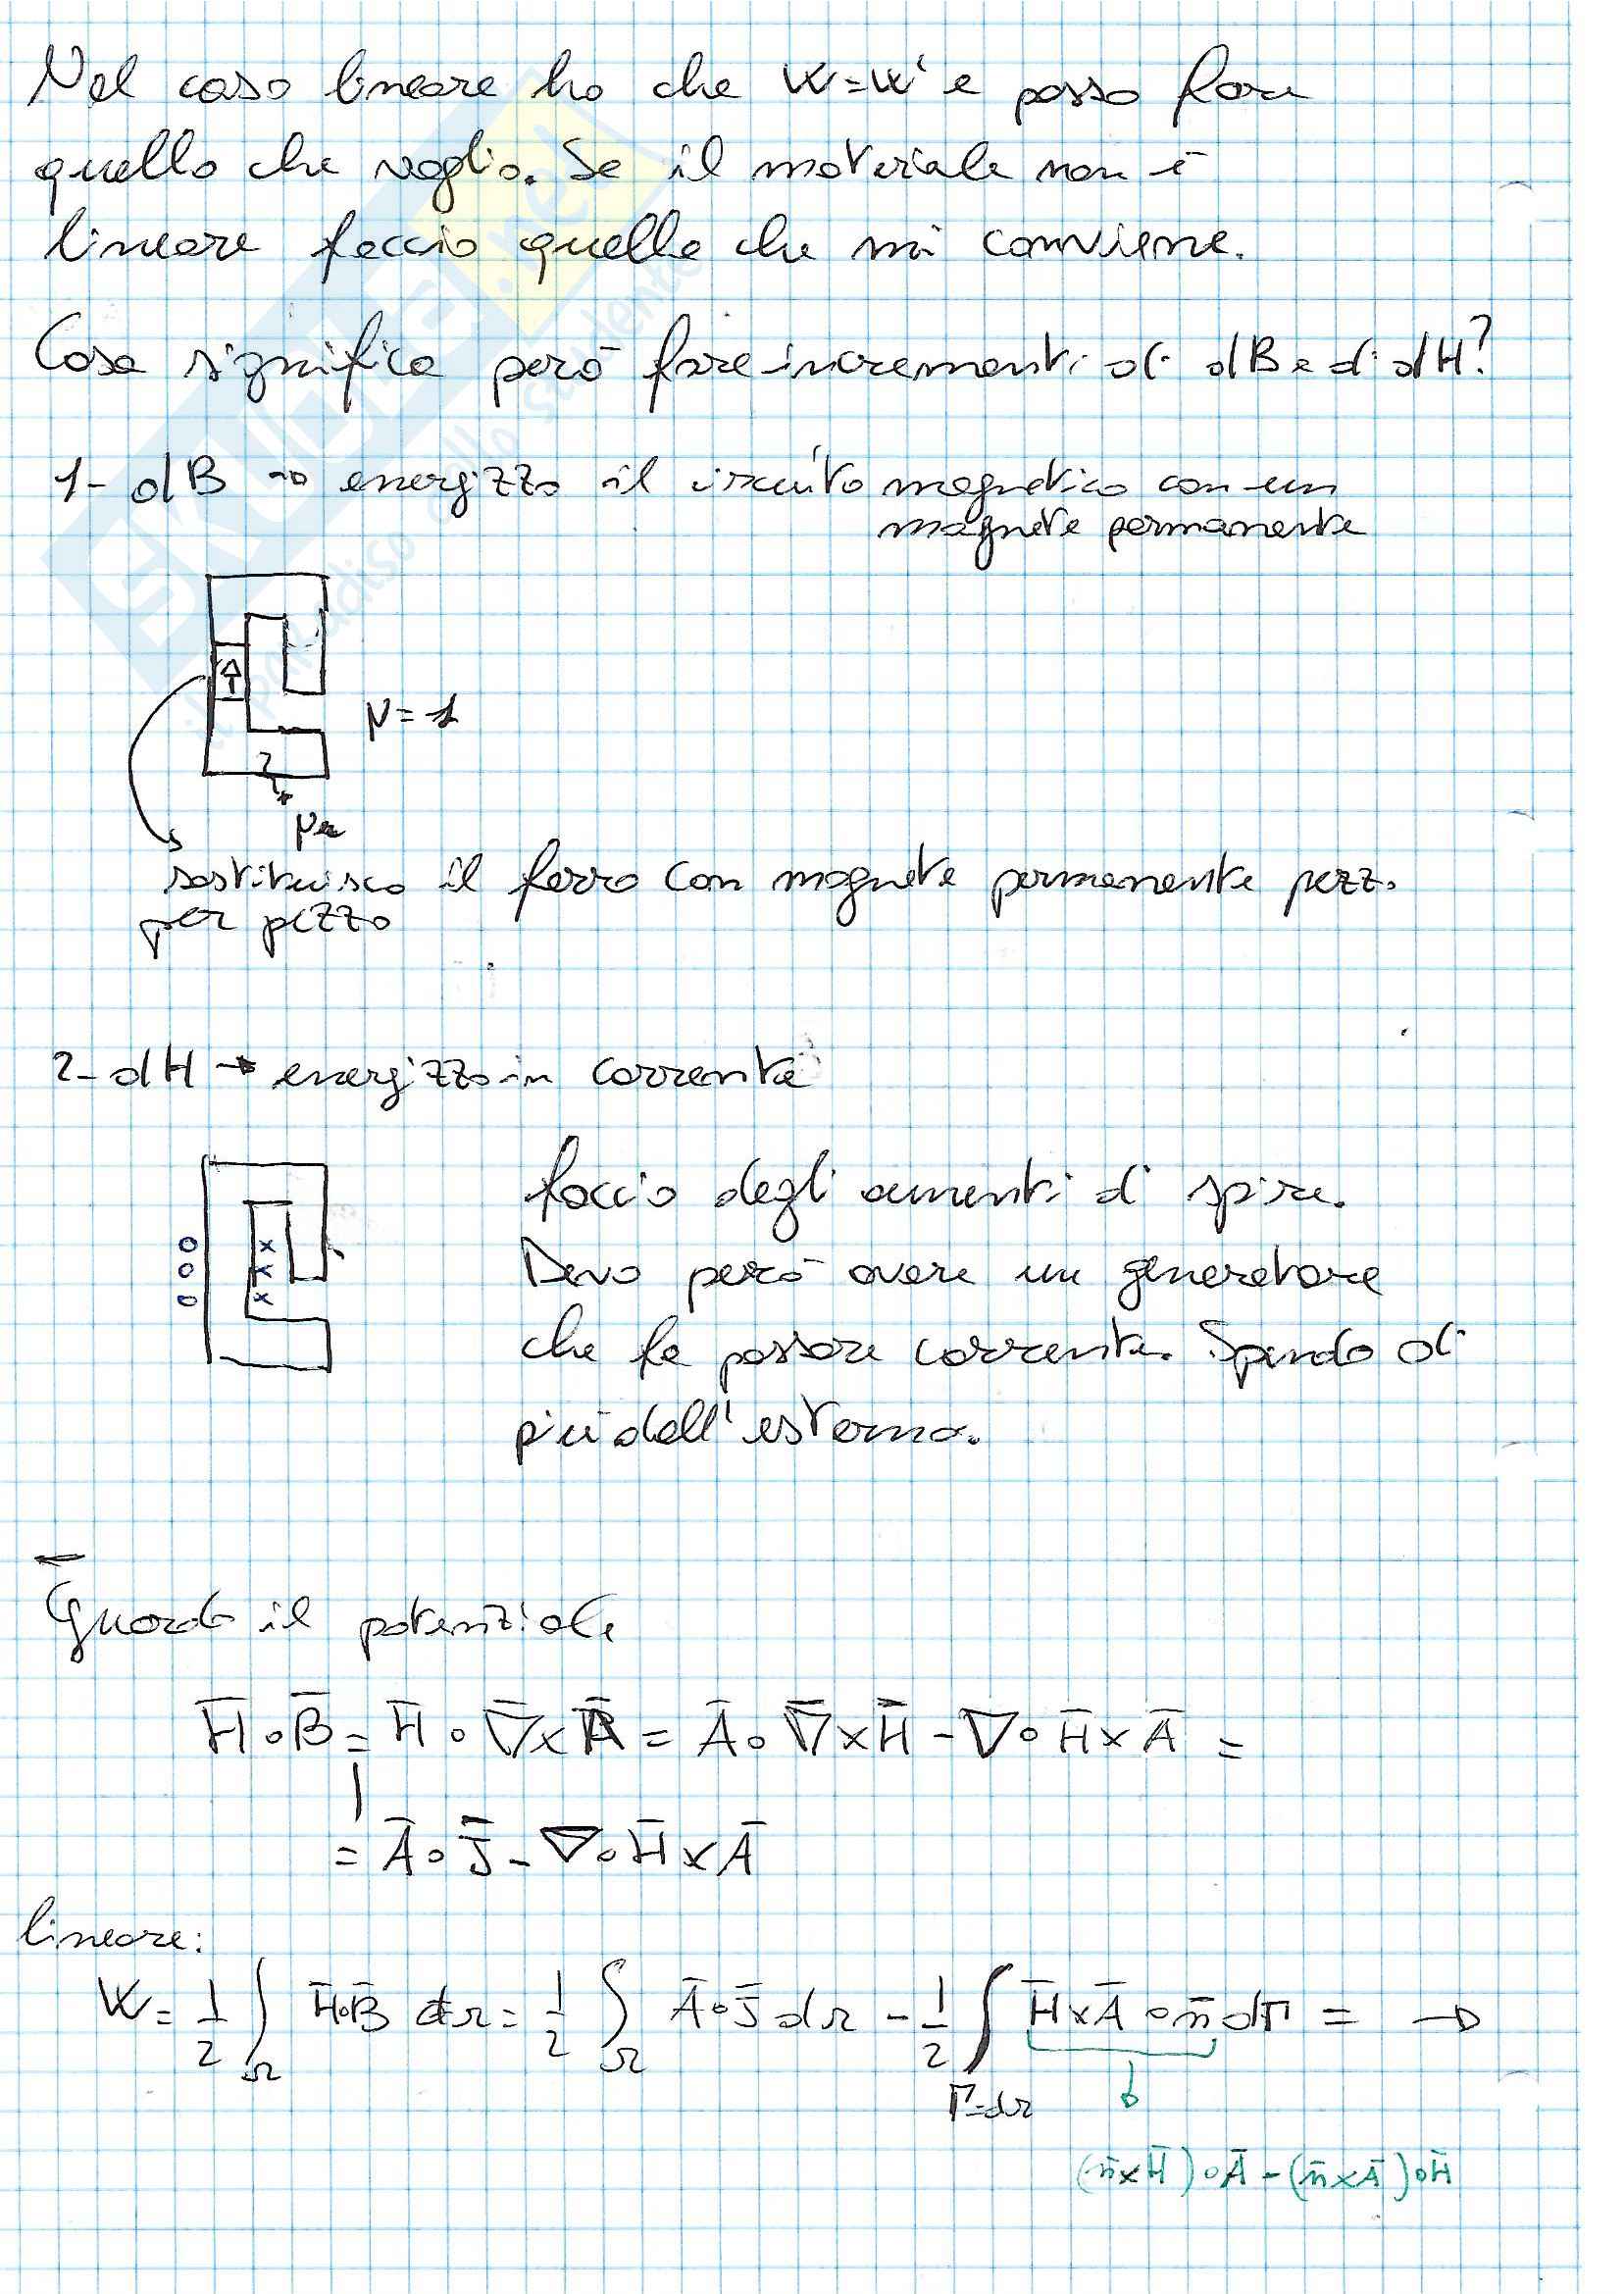 Nel caso lineare ho che W=W' e posso fare
quello che voglio. Se il materiale non è
lineare faccio quello che mi conviene.
Cosa significa però fare incrementi di dB e di dH?
1- dB → energizzo il circuito magnetico con un
magnete permanente
μ=1
μr
sostituisco il ferro con magnete permanente pezz.
per pezzo
2- dH → energizzo in corrente
faccio degli aumenti di spire.
Devo però avere un generatore
che fa passare corrente. Spendo di
più dall'esterno.
Guardo il potenziale
H̄∘B̄ = H̄∘∇̄×Ā = Ā∘∇̄×H̄ - ∇∘H̄×Ā =
= Ā∘J̄ - ∇∘H̄×Ā
lineare:
W = 1/2 ∫Ω H̄∘B̄ dΩ = 1/2 ∫Ω Ā∘J̄ dΩ - 1/2 ∫Γ=dΩ H̄×Ā∘n̄ dΓ = →
(n̄×H̄)∘Ā - (n̄×Ā)∘H̄
SKUOLA.net
il paradiso dello studente